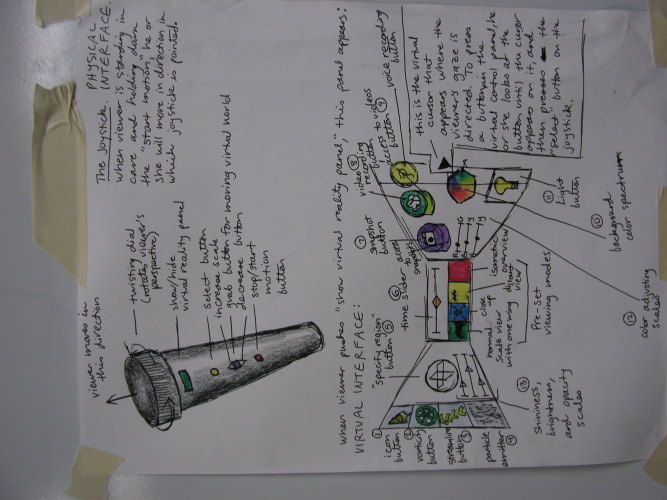 PHYSICAL
INTERFACE.
The Joystick.
when viewer is standing in
cave and holding down
the "start motion", he or
she will move in direction in
which joystick is pointed.
viewer moves in
this direction
twisting dial
(rotates viewer's
perspective)
show/hide
virtual reality panel
select button
increase scale
grab button for moving virtual world
decrease button
stop/start
motion
button
when viewer pushes "show virtual reality panel" this panel appears:
VIRTUAL INTERFACE:
① icon
button
② vorticity
button
③ streamline
button
④ particle
emitter
"specify region"
button ⑤
⑥ time slider
⑦ snapshot
button
access
to
snapshots
⑧ video
recording
button
access to videos
button
⑨ voice recording
button
this is the virtual
cursor that
appears where the
viewer's gaze is
directed. To press
a button in the
virtual control panel, he
or she looks at the
button until the cursor
appears on it and
then presses the
"select" button on the
joystick.
normal
scale view
close
up
with one wing
isometric
overview
distant
view
Pre-set
viewing modes
R G
B Y
⑩ background
color spectrum
⑪ Light
button
⑫ color adjusting
scales
⑬ shininess,
brightness,
and opacity
scales